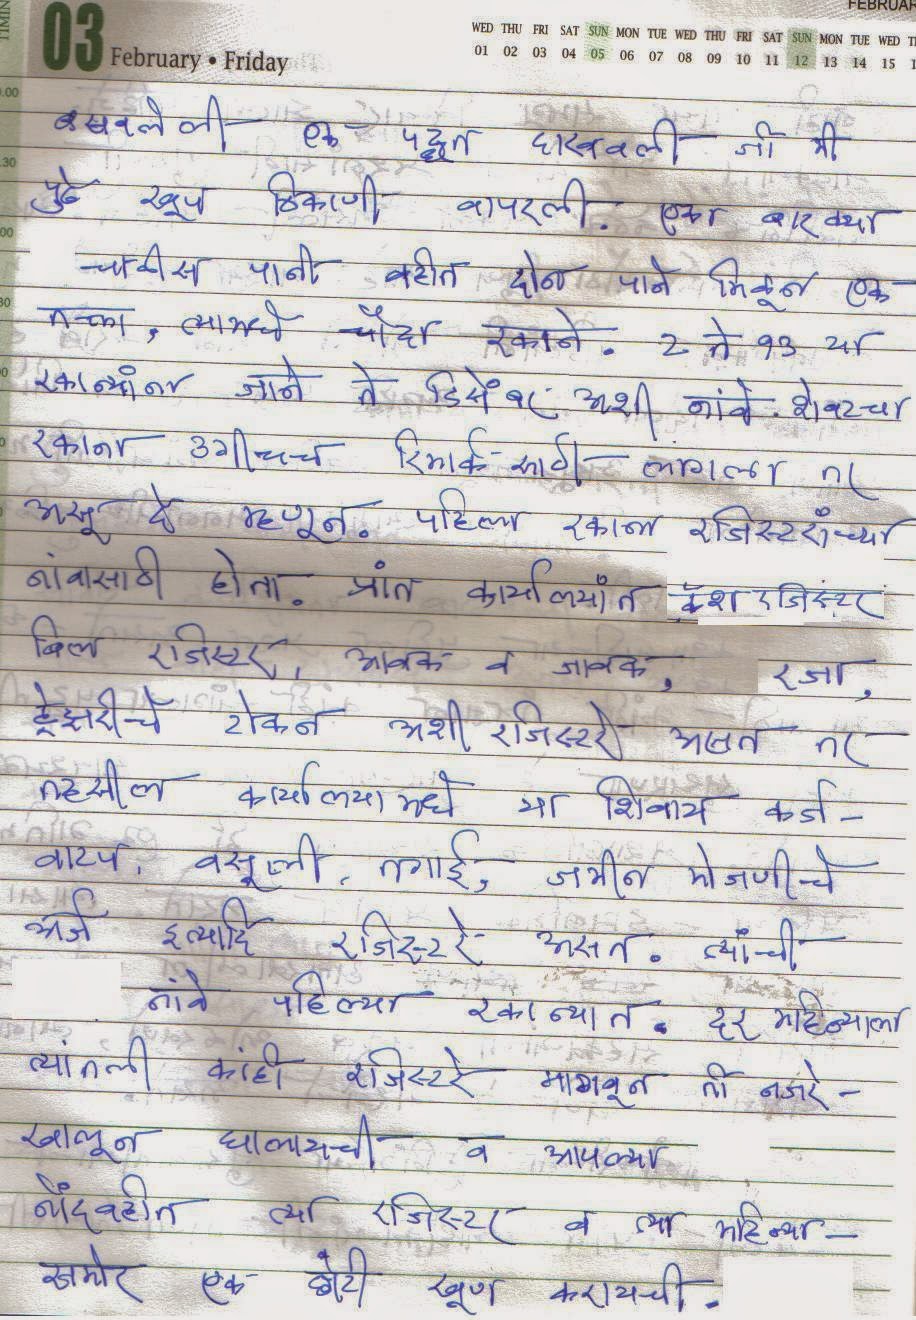 FEBRUAR
TIMIN
03 February • Friday
WED THU FRI SAT SUN MON TUE WED THU FRI SAT SUN MON TUE WED T
01 02 03 04 05 06 07 08 09 10 11 12 13 14 15 1
बसवलेली एक पद्धत दाखवली जी मी
पुढे खूप ठिकाणी वापरली. एका बारक्या
चाळीस पानी वहीत दोन पाने मिळून एक
तक्ता, त्यामधे चौदा रकाने. 2 ते १३ या
रकान्यांना जाने ते डिसेंबर अशी नांवे. शेवटचा
रकाना उगीचच रिमार्क साठी लागला तर
असू दे म्हणून. पहिला रकाना रजिस्टरांच्या
नांवासाठी होता. प्रांत कार्यालयांत कॅश रजिस्टर
बिल रजिस्टर, आवक व जावक, रजा,
ट्रेझरीचे टोकन अशी रजिस्टरे असत तर
तहसील कार्यालयामधे या शिवाय कर्ज-
वाटप, वसूली, तगाई, जमीन मोजणीचे
अर्ज इत्यादि रजिस्टरे असत. त्यांची
नांवे पहिल्या रकान्यात. दर महिन्याला
त्यांतली कांही रजिस्टरे मागवून ती नजरे-
खालून घालायची व आपल्या
नोंदवहीत त्या रजिस्टर व त्या महिन्या-
समोर एक छोटी खूण करायची.